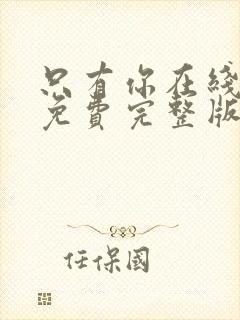 只有你在线
免费完整版
任保國